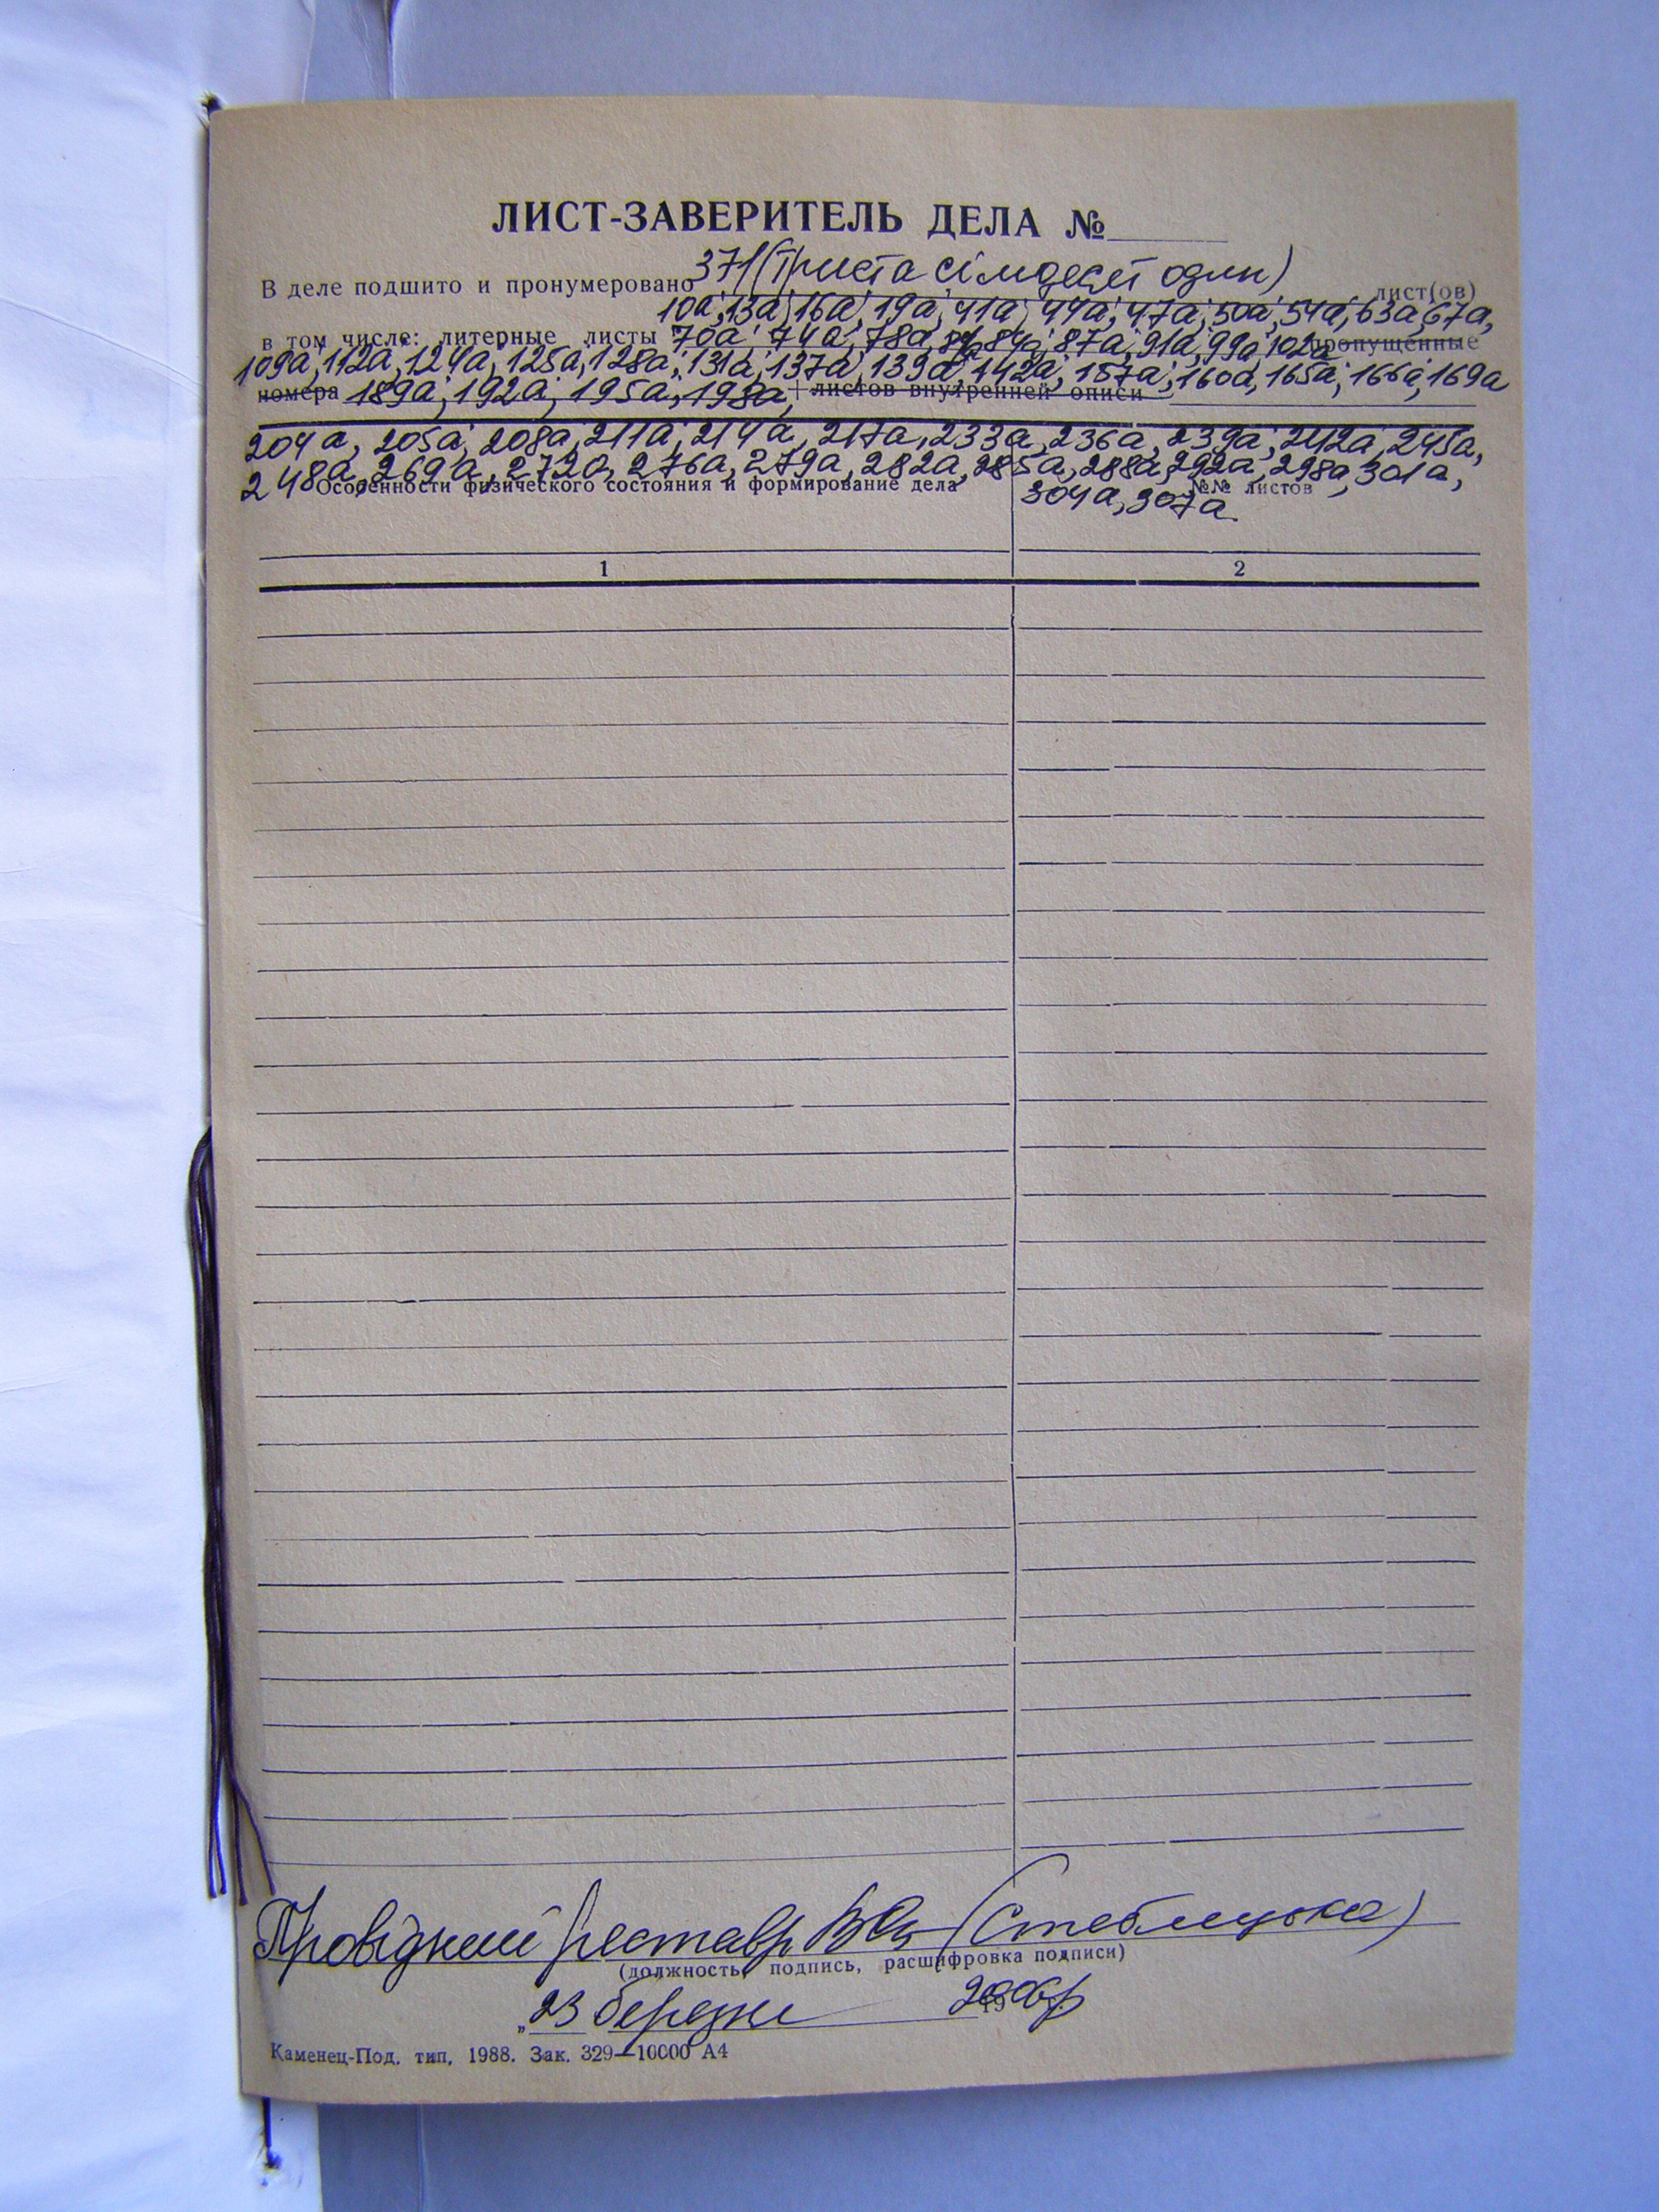 ЛИСТ-ЗАВЕРИТЕЛЬ ДЕЛА №
В деле подшито и пронумеровано 371 (триста сімдесят один) лист(ов)
10а, 13а, 16а, 19а, 41а, 44а, 47а, 50а, 54а, 63а, 67а,
в том числе: литерные листы 70а, 74а, 78а, 84а, 87а, 91а, 99а, 102а пропущенные
109а, 112а, 124а, 125а, 128а, 131а, 137а, 139а, 142а, 157а, 160а, 165а, 166а, 169а
номера 189а, 192а, 195а, 198а, + листов внутренней описи
204а, 205а, 208а, 211а, 214а, 217а, 233а, 236а, 239а, 242а, 245а,
248а, 269а, 272а, 276а, 279а, 282а, 285а, 288а, 292а, 298а, 301а,
Особенности физического состояния и формирование дела №№ листов
304а, 307а
1 2
Провідний реставр (Стеблицька)
(должность, подпись, расшифровка подписи)
„23 березня 2006р
Каменец-Под. тип. 1988. Зак. 329—10000 А4